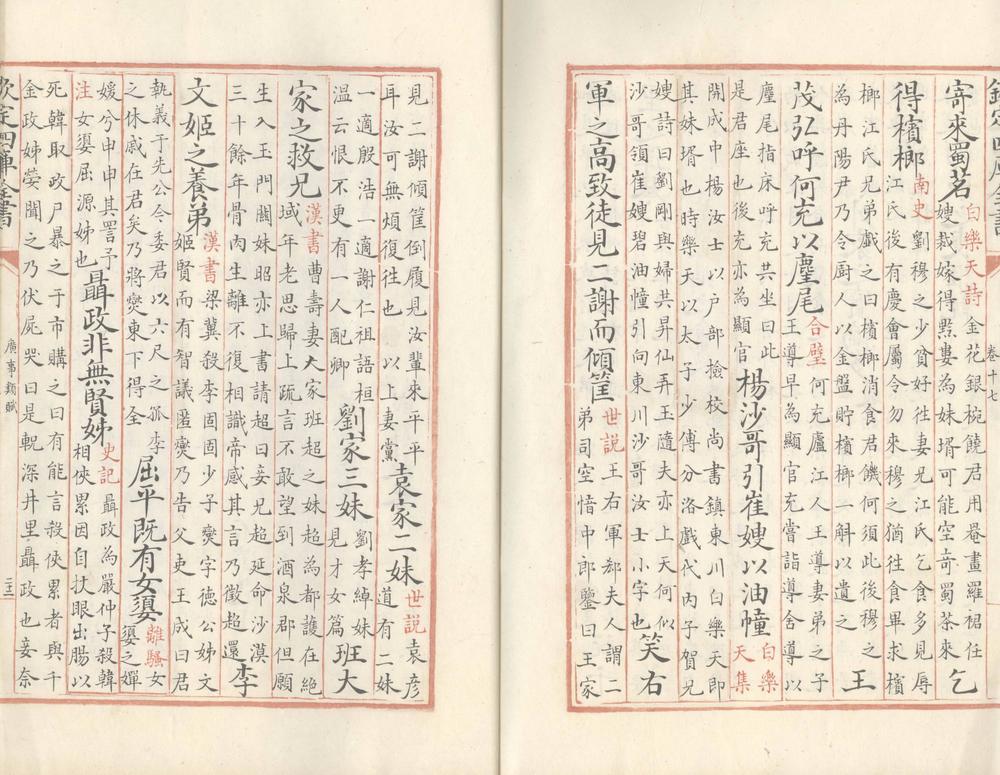 欽定四庫全書
卷十七
寄來蜀茗白樂天詩金花銀椀饒君用罨畫羅裙任嫂裁嫁得黔婁為妹壻可能空寄蜀茶來乞
得檳榔南史劉穆之少貧好往妻兄江氏乞食多見辱江氏後有慶會屬令勿來穆之猶往食畢求檳
榔江氏兄弟戲之曰檳榔消食君饑何須此後穆之為丹陽尹乃令厨人以金盤貯檳榔一斛以遺之王
茂弘呼何充以麈尾合璧何充廬江人王導妻弟之子王導早為顯官充嘗詣導舍導以
麈尾指床呼充共坐曰此是君座也後充亦為顯官楊沙哥引崔嫂以油幢白樂天集
開成中楊汝士以户部檢校尚書鎮東川白樂天即其妹壻也時樂天以太子少傅分洛戲代內子賀兄
嫂詩曰劉剛與婦共昇仙弄玉隨夫亦上天何似沙哥領崔嫂碧油幢引向東川沙哥汝士小字也笑右
軍之高致徒見二謝而傾筐世説王右軍郗夫人謂二弟司空愔中郎鑒曰王家
見二謝傾筐倒履見汝輩來平平耳汝可無煩復往也 以上妻黨袁家二妹世説袁彥道有二妹
一適殷浩一適謝仁祖語桓温云恨不更有一人配卿劉家三妹劉孝綽妹見才女篇班大
家之救兄漢書曹壽妻大家班超之妹超為都護在絶域年老思歸上疏言不敢望到酒泉郡但願
生入玉門關妹昭亦上書請超曰妾兄超延命沙漠三十餘年骨肉生離不復相識帝感其言乃徵超還李
文姬之養弟漢書梁冀殺李固固少子爕字德公姊文姬賢而有智議匿爕乃告父吏王成曰君
執義于先公今委君以六尺之孤李之休戚在君矣乃將爕東下得全屈平既有女嬃離騷女嬃之嬋
媛兮申申其詈予注女嬃屈源姊也聶政非無賢姊史記聶政為嚴仲子殺韓相俠累因自抉眼出腸以
死韓取政尸暴之于市購之曰有能言殺俠累者與千金政姊嫈聞之乃伏屍哭曰是軹深井里聶政也妾奈
欽定四庫全書
廣事類賦